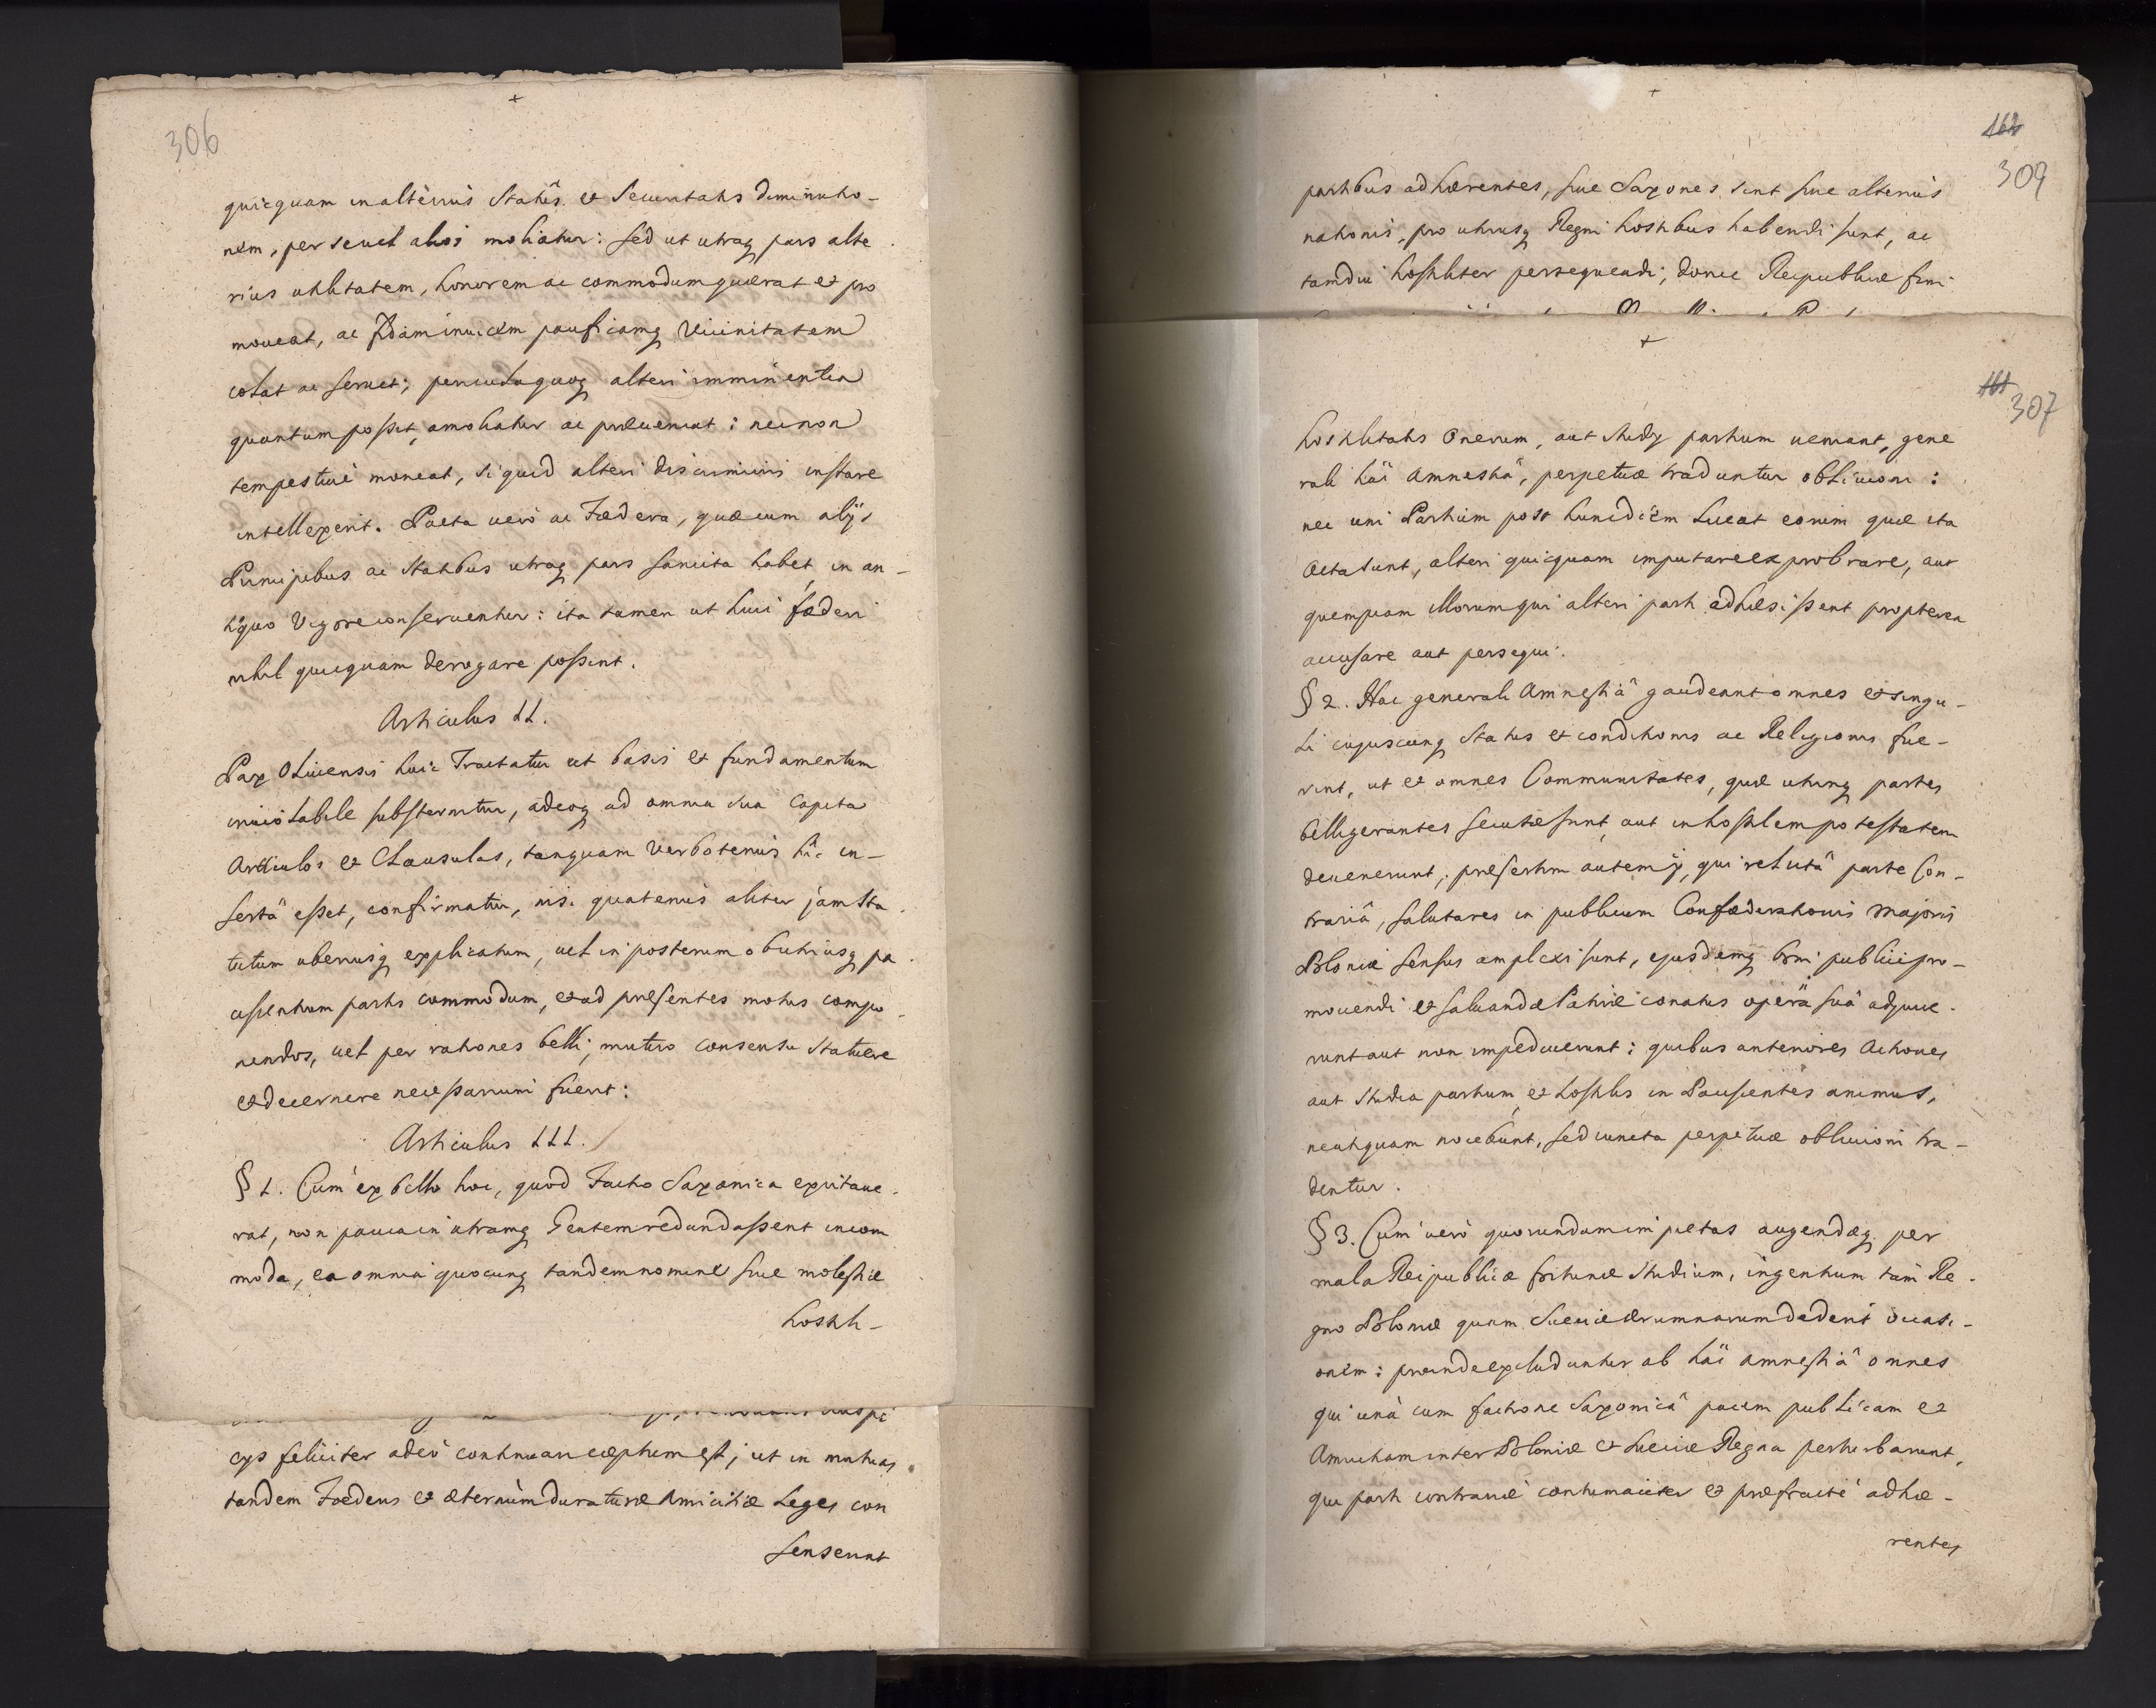 306
quicquam in alterius Statûs et Securitatis diminutio-
nem, per se vel alios moliatur: sed ut utraq pars alte
rius utilitatem, honorem ac commodum quærat et pro
moveat, ac fidam invicem pacificamq Vicinitatem
colat ac servet; periculaquoq alteri imminentia
quantum possit, amoliatur ac præveniat: necnon
tempestivè moneat, si quid alteri discriminis instare
intellexerit. Pacta verò ac Fædera, quæ cum alijs
Principibus ac Statibus utraq pars sancita habet, in an-
tiquo Vigore conserventur: ita tamen ut huic fæderi
nihil quicquam derogare possint.
Articulus II.
Pax Olivensis huic Tractatui ut basis et fundamentum
inviolabile substernitur, adeoq ad omnia sua Capita
Articulos et Clausulas, tanquam Verbotenus hîc in-
serta esset, confirmatur, nisi quatenus aliter jam sta
tutum uberiusq explicatum, vel in posterum ob utriusq pa
ciscentium partis commodum, et ad præsentes motus compo
nendos, vel per rationes belli, mutuo consensu Statuere
et decernere necessarium fuerit:
Articulus III.
§ 1. Cùm ex bello hoc, quod Factio Saxonica excitave
rat, non pauca in utramq Gentem redundassent incom
moda, ea omnia quocunq tandem nomine sive molestiæ
hostili-
cijs feliciter adeò continuari cæptum est, ut in mutuas
tandem Foederis et æternùm duraturæ Amicitiæ Leges con
senserint
162
309
partibus adhærentes, sive Saxones sint sive alterius
nationis, pro utriusq Regni hostibus habendi sunt, ac
tamdiu hostiliter persequendi; donec Reipublicæ sini
161
307
hostilitatis Onerum, aut studij partium veniant, gene
rali hâc Amnestiâ, perpetuæ traduntur oblivioni:
nec uni Partium post hunc diem liceat eorum quæ ita
Acta sunt, alteri quicquam imputare exprobrare, aut
quempiam illorum qui alteri parti adhæsissent propterea
accusare aut persequi.
§ 2. Hac generali Amnestiâ gaudeant omnes et singu-
li cujuscunq Status et conditionis ac Religionis fue-
rint, ut et omnes Communitates, quæ utrinq partes
belligerantes secutæ sunt, aut in hostilem potestatem
devenerunt, præsertim autem ij, qui relictâ parte Con-
trariâ, salutares in publicum Confæderationis Majoris
Poloniæ sensus amplexi sunt, ejusdemq boni publici pro-
movendi et salvandæ Patriæ conatus operâ suâ adjuve-
runt aut non impediverunt: quibus anteriores Actiones
aut studia partium, et hostilis in Paciscentes animus,
neutiquam nocebunt, sed cuncta perpetuæ oblivioni tra-
dentur.
§ 3. Cum verò quorundam impietas augendæq per
mala Reipublicæ fortunæ studium, ingentium tam Re-
gno Poloniæ quam Sueciæ ærumnarum dederit occasi-
onem: proinde excluduntur ab hâc amnestiâ omnes
qui unà cum factione Saxonicâ pacem publicam et
Amicitiam inter Poloniæ et Sueciæ Regna perturbarunt,
qui parti contrariæ contumaciter et præfractè adhæ-
rentes